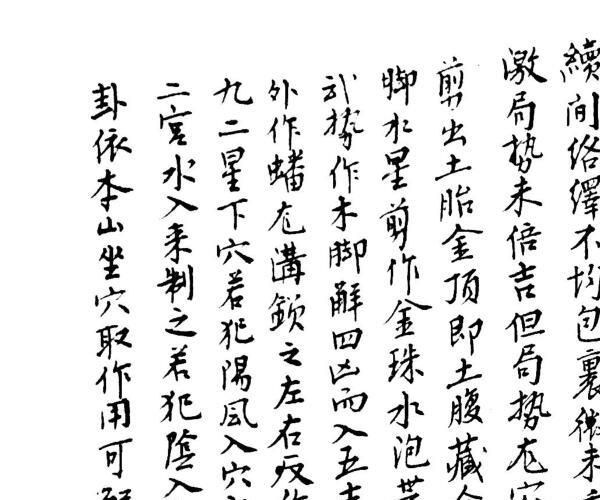 續间络繹不均包裹微未
激局势未倍吉但局势龙穴
剪出土胎金顶即土腹藏金
脚水星剪作金珠水泡
武势作木脚解四凶而入五吉
外作蟠龙溝鎖之左右及作
九二星下穴若犯陽風入穴
二宮水入来制之若犯陰入
卦依本山坐穴取作用可